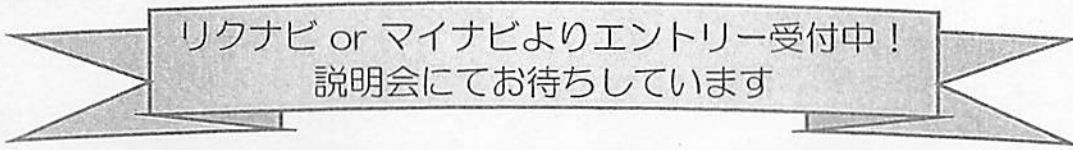 リクナビ or マイナビよりエントリー受付中！
説明会にてお待ちしています